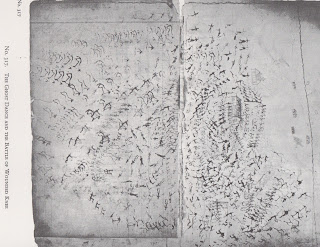 No. 317
No. 317. The Ghost Dance and the Battle of Wounded Knee